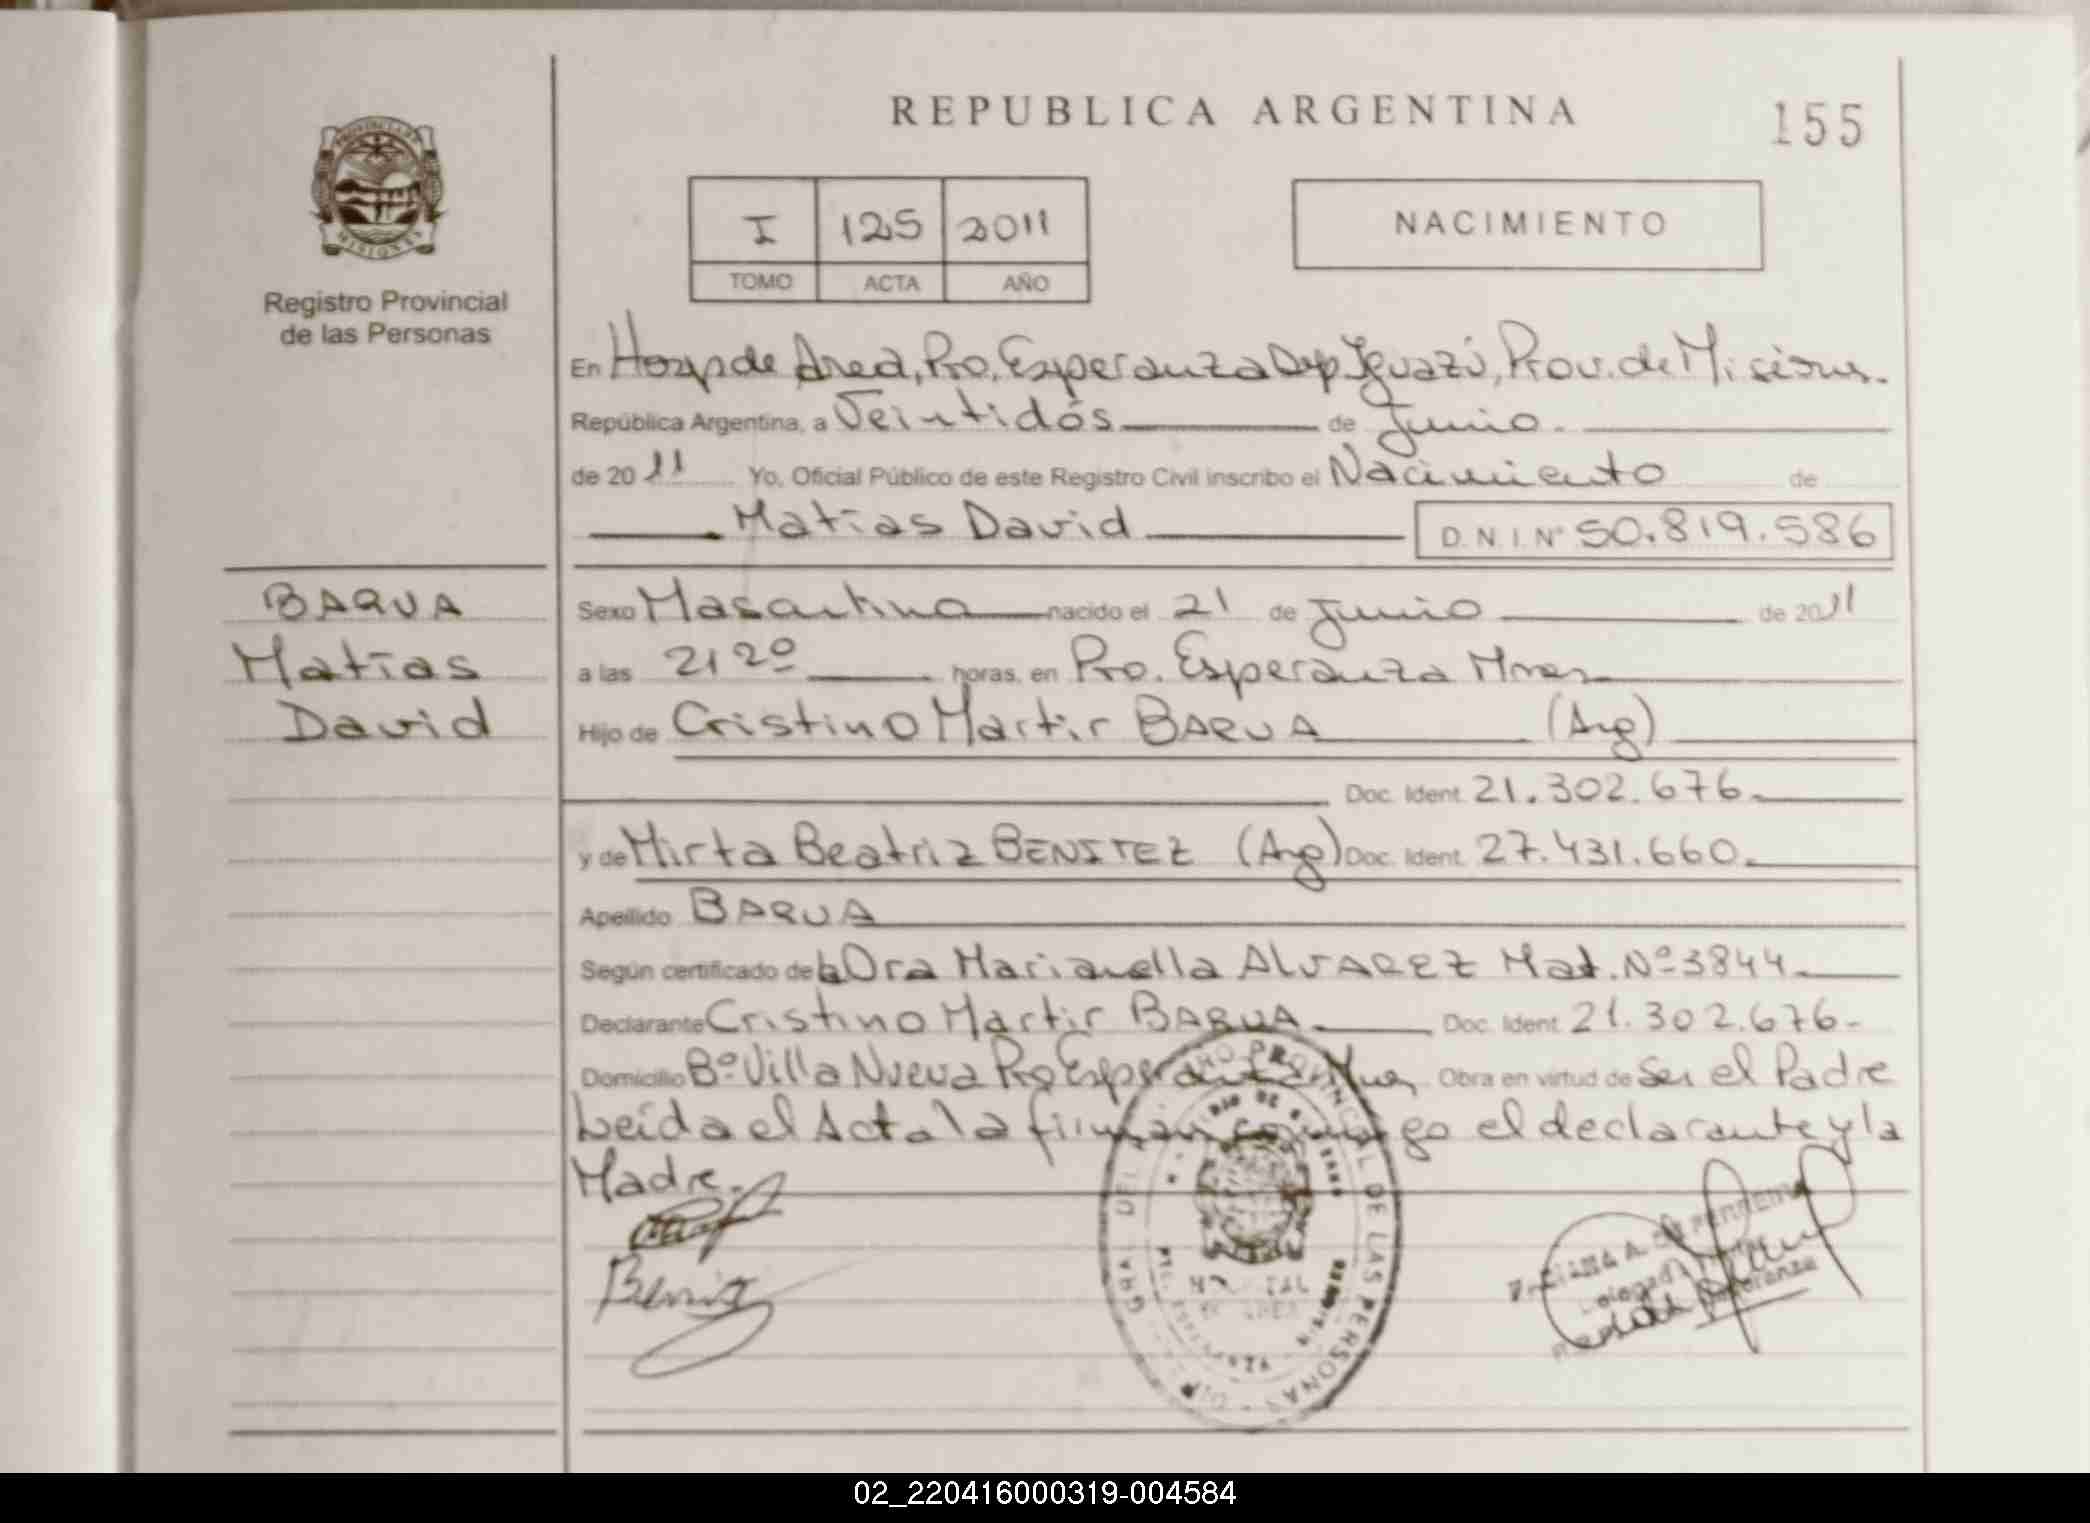 REPUBLICA ARGENTINA
155
PROVINCIA DE MISIONES
Registro Provincial
de las Personas
I 125 2011
TOMO ACTA AÑO
NACIMIENTO
En Hosp de Area, Pto. Esperanza Dep Iguazú, Prov. de Misiones.
República Argentina, a Veintidós de Junio.
de 2011 Yo, Oficial Público de este Registro Civil inscribo el Nacimiento de
Matías David D.N.I. Nº 50.819.586
BARUA
Matías
David
Sexo Masculino nacido el 21 de Junio de 2011
a las 21 20 horas, en Pto. Esperanza Mnes
Hijo de Cristino Martir BARUA (Arg)
Doc. Ident. 21.302.676.
y de Mirta Beatriz BENITEZ (Arg) Doc. Ident. 27.431.660.
Apellido BARUA
Según certificado de la Dra Marianella ALVAREZ Mat. Nº 3844.
Declarante Cristino Martir BARUA Doc. Ident. 21.302.676-
Domicilio Bº Villa Nueva Pto Esperanza Mnes Obra en virtud de Ser el Padre
Leída el Acta la firman conmigo el declarante y la
Madre.
Benitez
GRAL DEL REGISTRO PROVINCIAL DE LAS PERSONAS
HOSPITAL
DE AREA
PTO. ESPERANZA
A. DE FERREIRA
Delegada
Esperanza
02_220416000319-004584